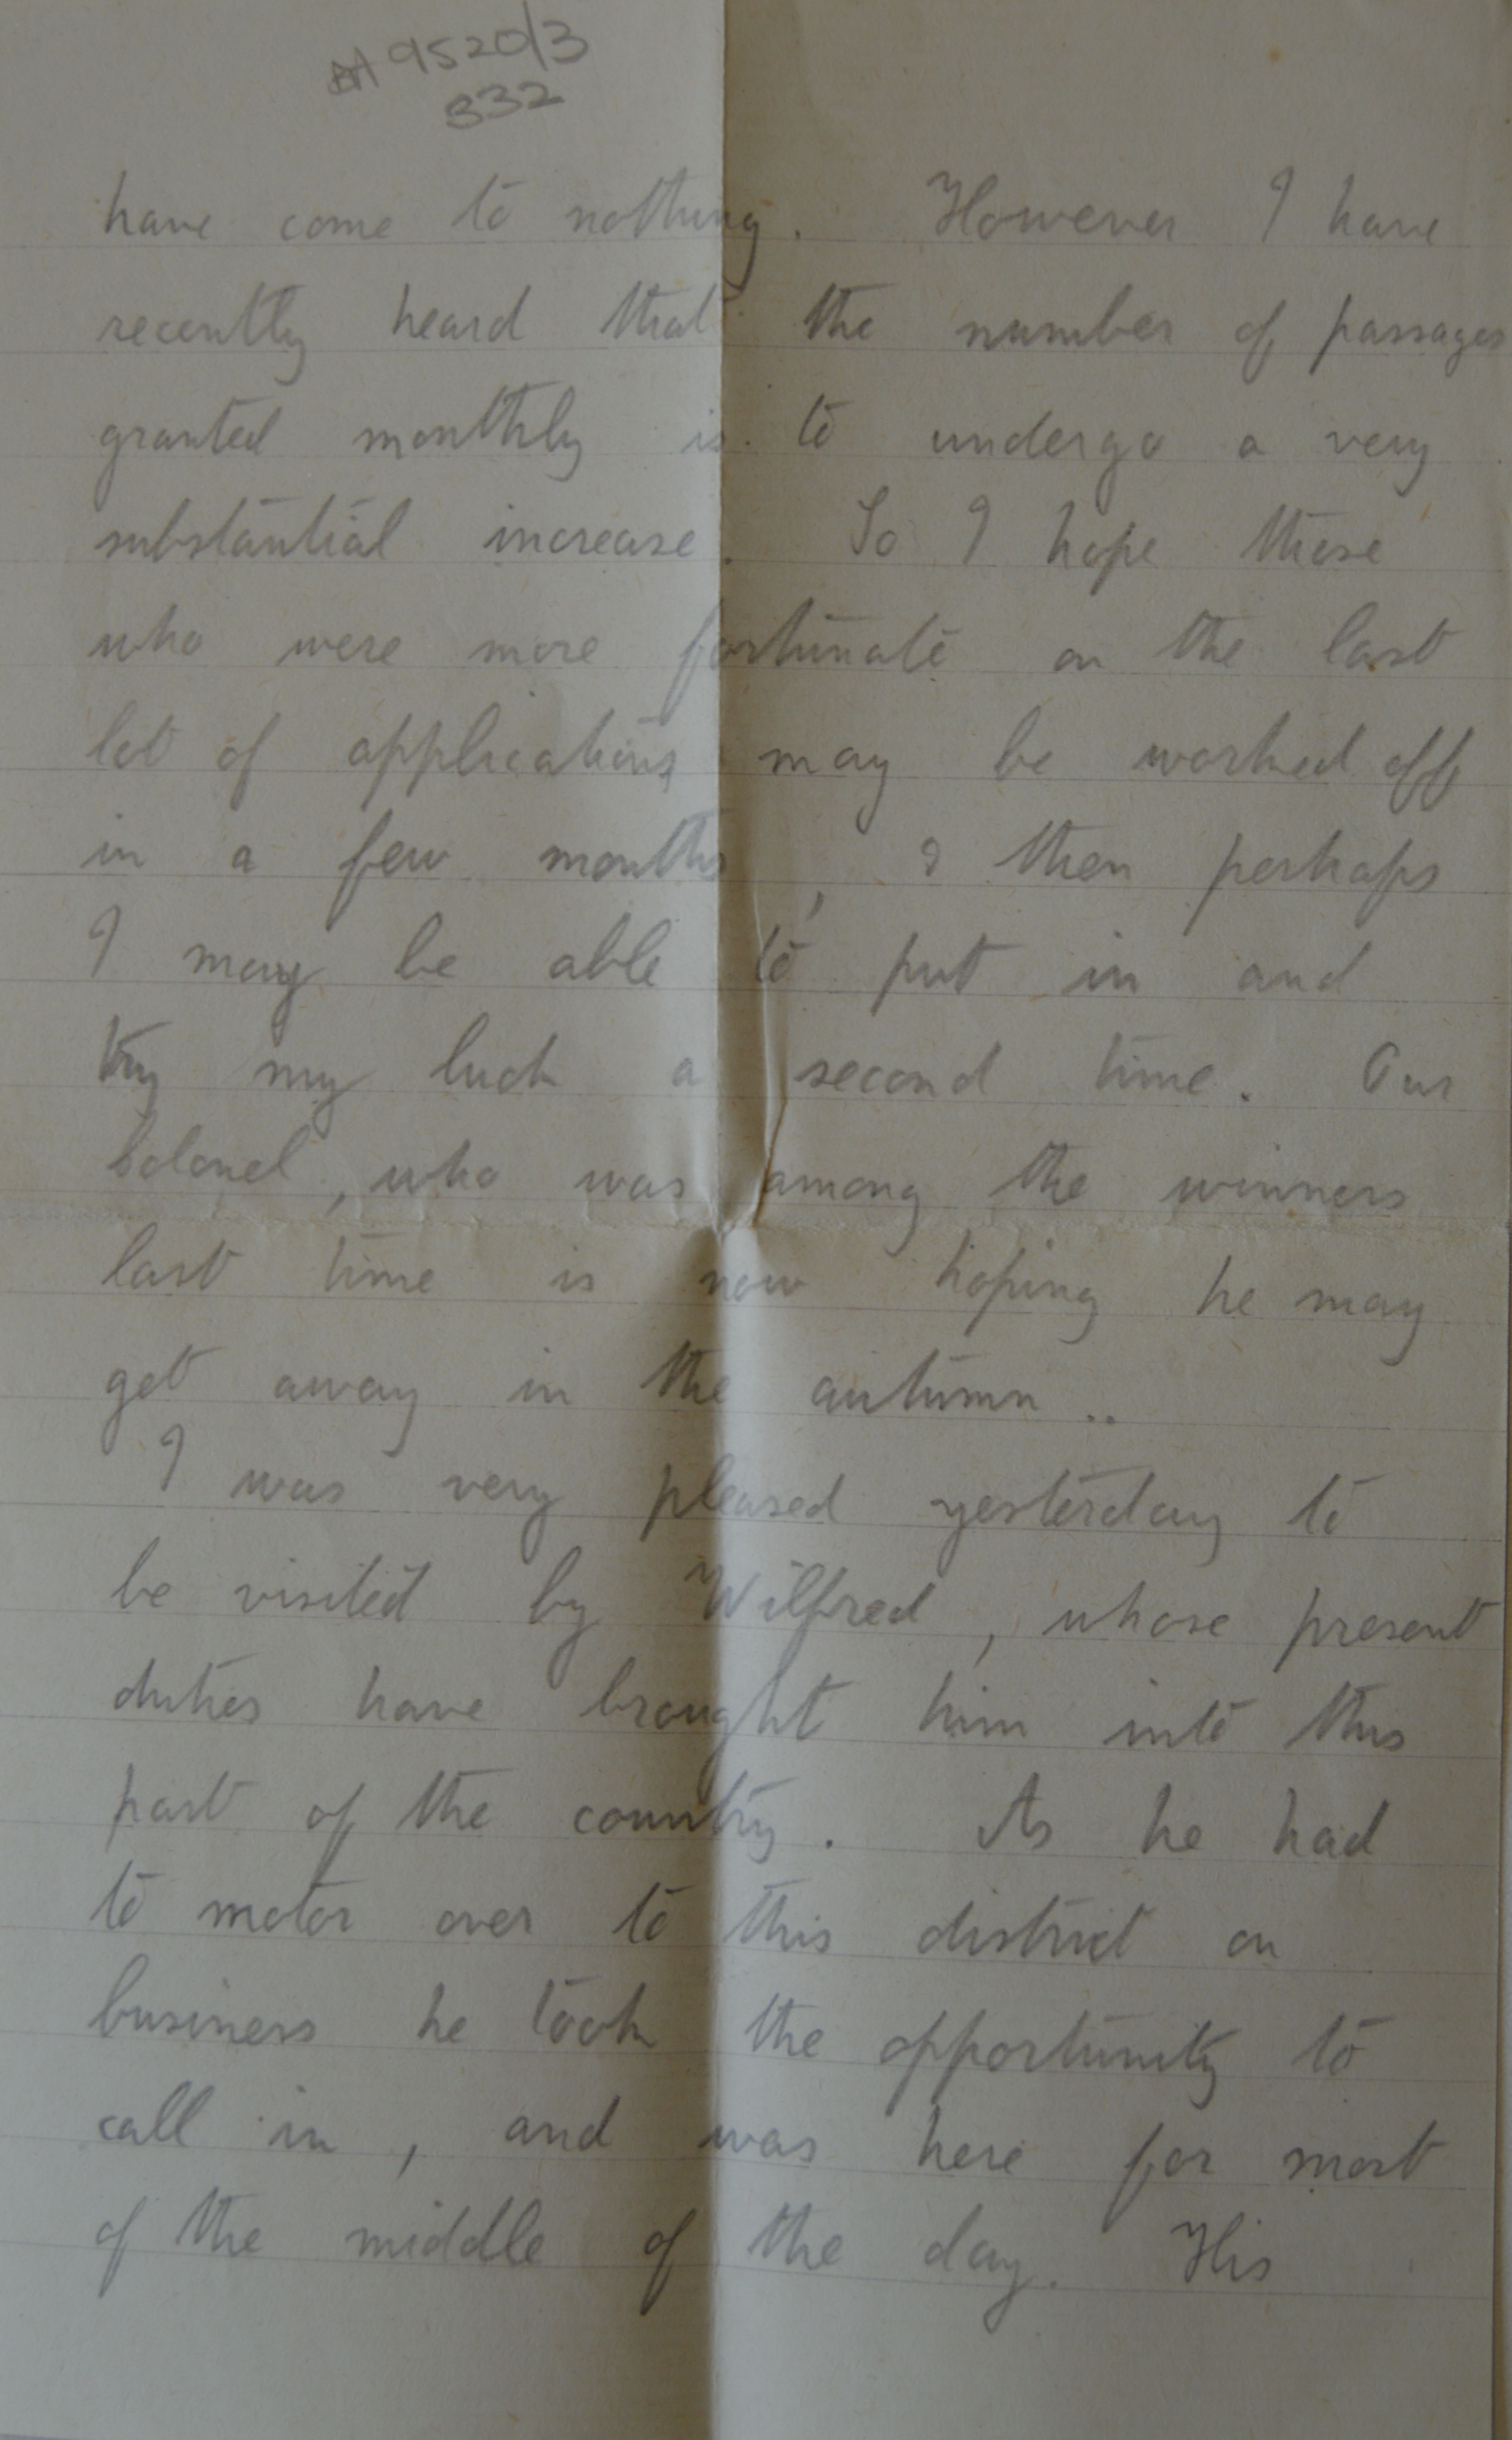 9520/3
332
have come to nothing. However I have
recently heard that the number of passages
granted monthly is to undergo a very
substantial increase. So I hope those
who were more fortunate on the last
lot of applications may be worked off
in a few months, & then perhaps
I may be able to put in and
try my luck a second time. Our
Colonel, who was among the winners
last time is now hoping he may
get away in the autumn..
I was very pleased yesterday to
be visited by Wilfred, whose present
duties have brought him into this
part of the country. As he had
to motor over to this district on
business he took the opportunity to
call in, and was here for most
of the middle of the day. His